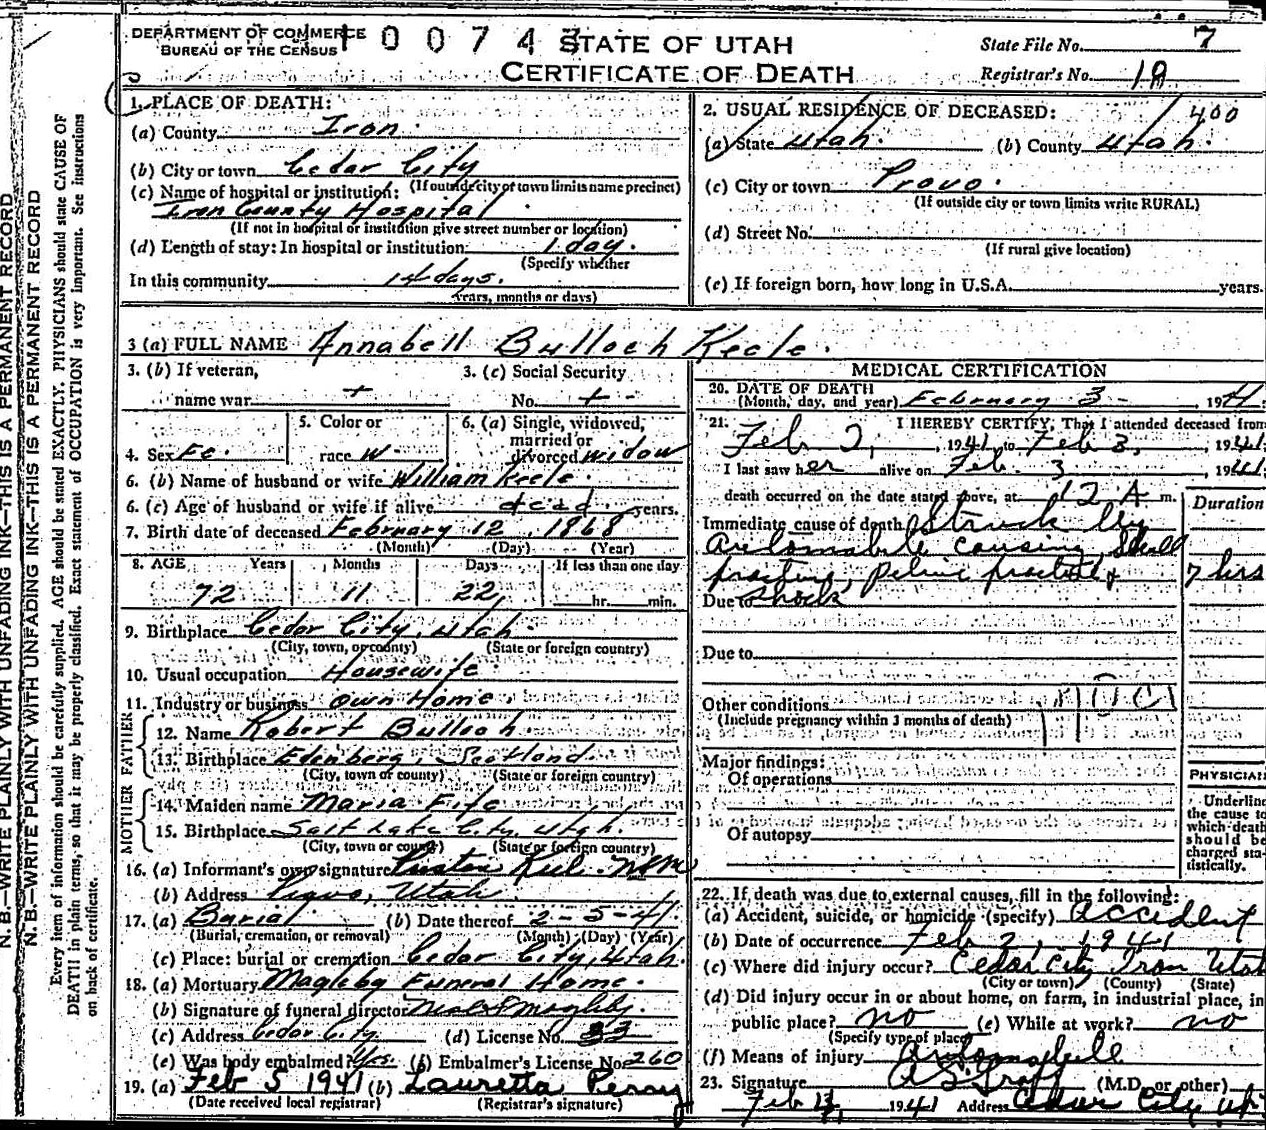 DEPARTMENT OF COMMERCE
BUREAU OF THE CENSUS
10074
STATE OF UTAH
CERTIFICATE OF DEATH
State File No. 7
Registrar's No. 18
1. PLACE OF DEATH:
(a) County Iron
(b) City or town Cedar City
(If outside city or town limits name precinct)
(c) Name of hospital or institution:
Iron County Hospital
(If not in hospital or institution give street number or location)
(d) Length of stay: In hospital or institution: 1 day.
(Specify whether
In this community 14 days.
years, months or days)
2. USUAL RESIDENCE OF DECEASED: 400
(a) State Utah. (b) County Utah.
(c) City or town Provo.
(If outside city or town limits write RURAL)
(d) Street No.
(If rural give location)
(e) If foreign born, how long in U.S.A. years.
3 (a) FULL NAME Annabell Bulloch Keele.
3. (b) If veteran, name war +
3. (c) Social Security No. +
4. Sex Fe.
5. Color or race W
6. (a) Single, widowed, married or divorced widow
6. (b) Name of husband or wife William Keele.
6. (c) Age of husband or wife if alive dead years.
7. Birth date of deceased February 12, 1868
(Month) (Day) (Year)
8. AGE Years Months Days If less than one day
72 11 22 hr. min.
9. Birthplace Cedar City, Utah.
(City, town, or county) (State or foreign country)
10. Usual occupation Housewife
11. Industry or business own Home.
FATHER
12. Name Robert Bulloch
13. Birthplace Edenberg, Scotland.
(City, town or county) (State or foreign country)
MOTHER
14. Maiden name Maria Fife
15. Birthplace Salt Lake City, Utah.
(City, town or county) (State or foreign country)
16. (a) Informant's own signature
(b) Address Provo, Utah
17. (a) Burial (b) Date thereof 2-5-41
(Burial, cremation, or removal) (Month) (Day) (Year)
(c) Place: burial or cremation Cedar City, Utah.
18. (a) Mortuary Magleby Funeral Home.
(b) Signature of funeral director Magleby.
(c) Address Cedar City. (d) License No. 33
(e) Was body embalmed? Yes. (f) Embalmer's License No. 260
19. (a) Feb 5 1941 (b) Lauretta Perry
(Date received local registrar) (Registrar's signature)
MEDICAL CERTIFICATION
20. DATE OF DEATH
(Month, day, and year) February 3 , 1941
21. I HEREBY CERTIFY, That I attended deceased from
Feb 2, , 1941 to Feb 3, , 1941
I last saw her alive on Feb. 3 1941
death occurred on the date stated above, at 12 A m.
Duration
Immediate cause of death Struck by
Automobile causing Skull
fracture, pelvic fracture & 7 hrs
Due to shock
Due to
Other conditions
(Include pregnancy within 3 months of death)
Major findings:
Of operations
Of autopsy
PHYSICIAN
Underline
the cause to
which death
should be
charged sta-
tistically.
22. If death was due to external causes, fill in the following:
(a) Accident, suicide, or homicide (specify) Accident
(b) Date of occurrence Feb 2, 1941
(c) Where did injury occur? Cedar City Iron Utah
(City or town) (County) (State)
(d) Did injury occur in or about home, on farm, in industrial place, in
public place? no (e) While at work? no
(Specify type of place)
(f) Means of injury Automobile
23. Signature (M.D. or other)
Feb , 1941 Address Cedar City Ut
N. B.—WRITE PLAINLY WITH UNFADING INK—THIS IS A PERMANENT RECORD
N. B.—WRITE PLAINLY WITH UNFADING INK—THIS IS A PERMANENT RECORD
Every item of information should be carefully supplied. AGE should be stated EXACTLY. PHYSICIANS should state CAUSE OF
DEATH in plain terms, so that it may be properly classified. Exact statement of OCCUPATION is very important. See instructions
on back of certificate.